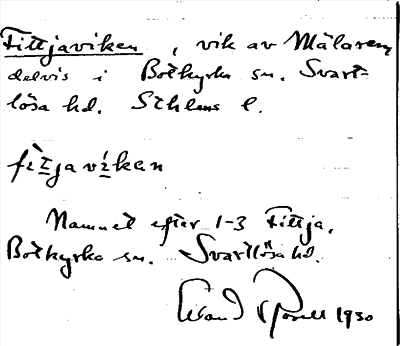 Fittjaviken, vik av Mälaren,
delvis i Botkyrka sn. Svart-
lösa hd. Sthlms l.
fìtjavíken
Namnet efter 1-3 Fittja,
Botkyrka sn. Svartlösa hd.
1930